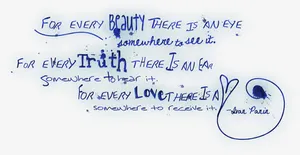 FOR EVERY BEAUTY THERE IS AN EYE
somewhere to see it.
FOR EVERY TRUTH THERE IS AN EAR
somewhere to hear it.
FOR EVERY LOVE THERE IS A
somewhere to receive it.